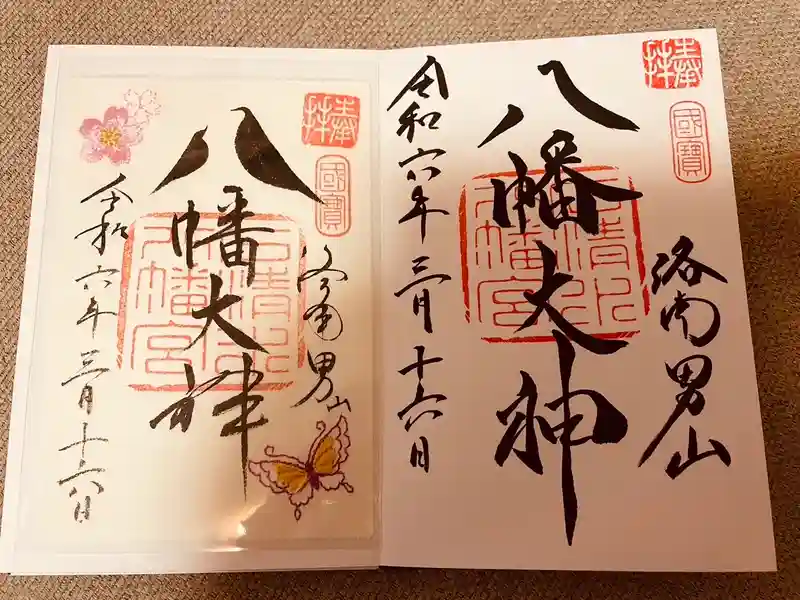 奉拝
國寶
洛南男山
八幡大神
石清水
八幡宮
令和六年三月十六日
奉拝
國寶
洛南男山
八幡大神
石清水
八幡宮
令和六年三月十六日